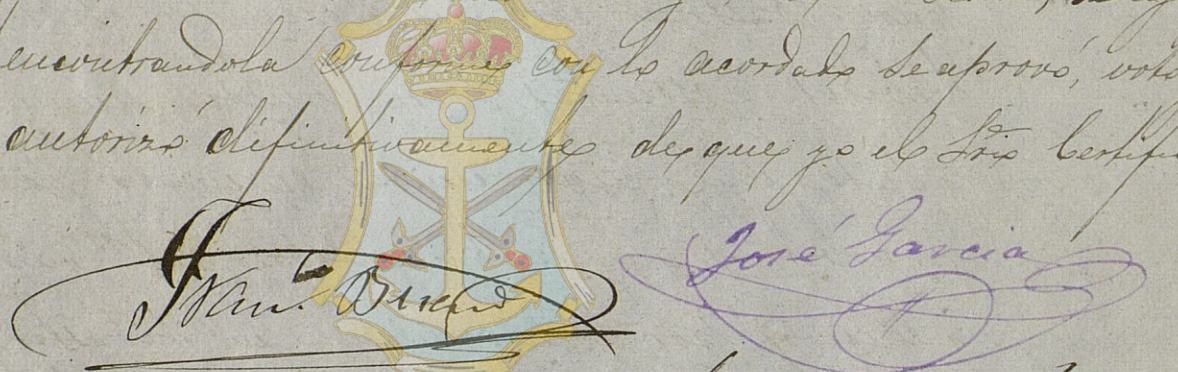 encontrandola conforme con lo acordado se aprovó, voto
autorizó difinitivamente de que yo el Srio Certifi
Fran.
José Garcia